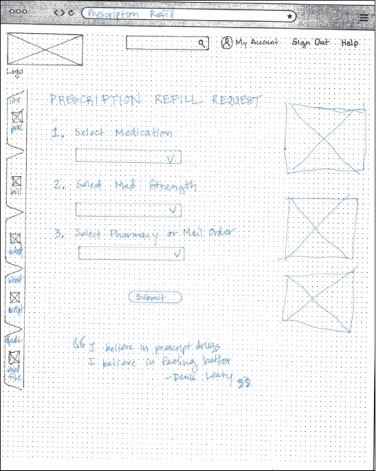 Prescription Refill
My Account Sign Out Help
Logo
PRESCRIPTION REFILL REQUEST
1. Select Medication
2. Select Med Strength
3. Select Pharmacy or Mail Order
Submit
bill
I believe in prescript drugs
I believe in feeling better
- Denis Leary